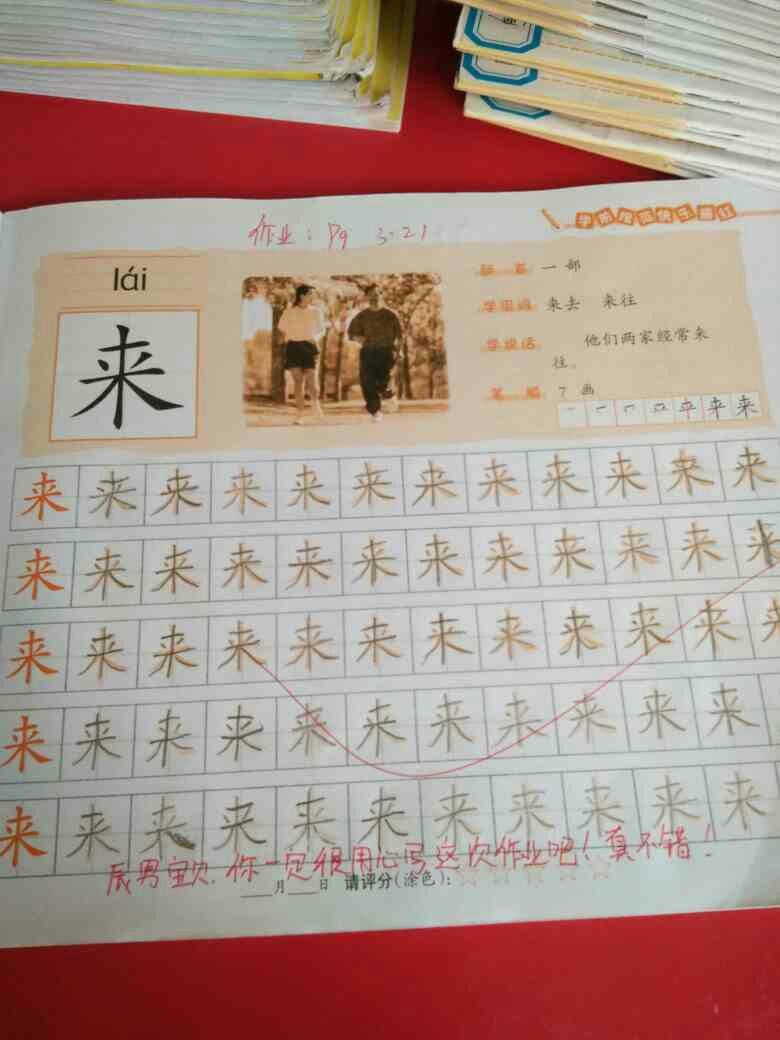 作业：Pg 3-21
学前规范快乐描红
lái
来
部首 一部
学组词 来去 来往
学说话 他们两家经常来
往。
笔顺 7画
来
来 来 来 来 来 来 来 来 来 来 来 来
来 来 来 来 来 来 来 来 来 来 来 来
来 来 来 来 来 来 来 来 来 来 来 来
来 来 来 来 来 来 来 来 来 来 来
来 来 来 来 来 来 来 来 来 来 来
辰男宝贝，你一定很用心写这次作业吧！真不错！
月 日 请评分(涂色)：